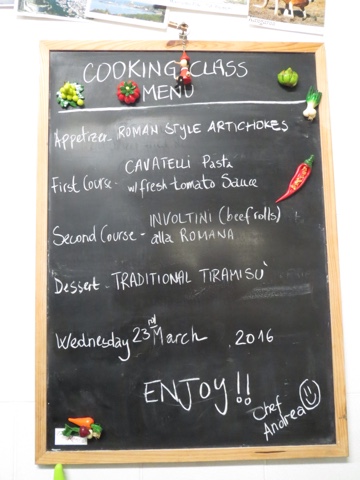 COOKING CLASS
MENU
Appetizer - ROMAN STYLE ARTICHOKES
First Course - CAVATELLI Pasta
w/fresh tomato Sauce
Second Course - INVOLTINI (beef rolls)
alla ROMANA
Dessert - TRADITIONAL TIRAMISÙ
Wednesday 23rd March 2016
ENJOY!!
Chef
Andrea